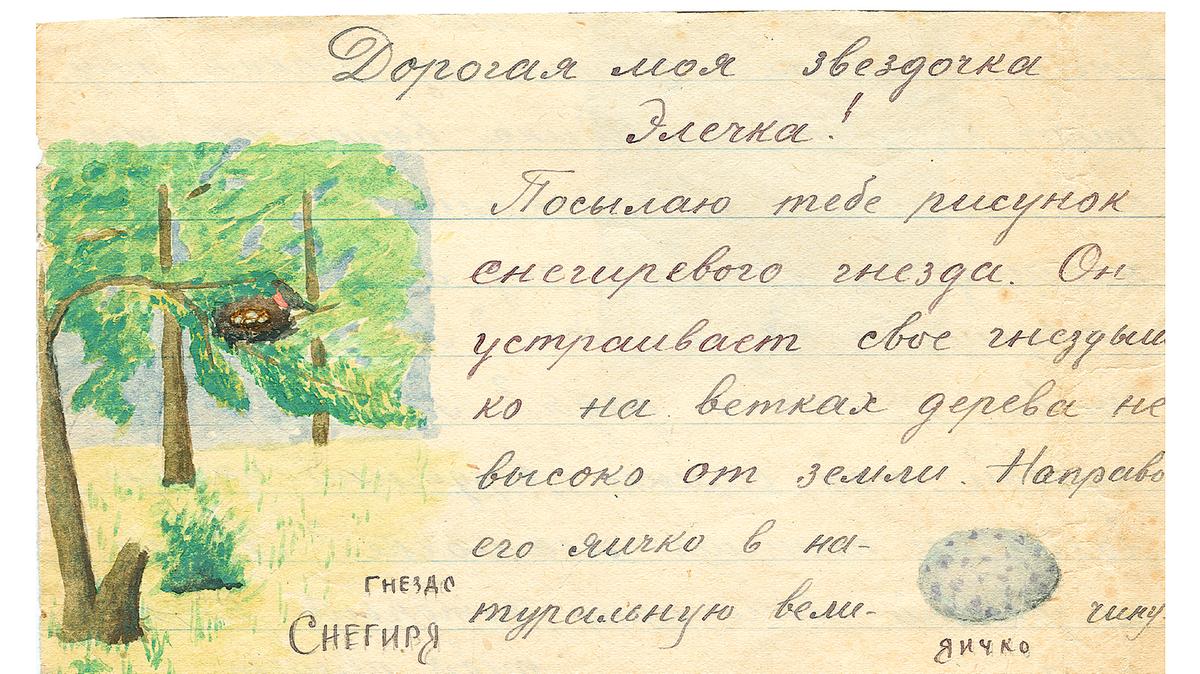 Дорогая моя звездочка
Элечка!
Посылаю тебе рисунок
снегиревого гнезда. Он
устраивает свое гнездыш
ко на ветках дерева не
высоко от земли. Направо
его яичко в на-
туральную вели- чину.
гнездо
Снегиря
яичко